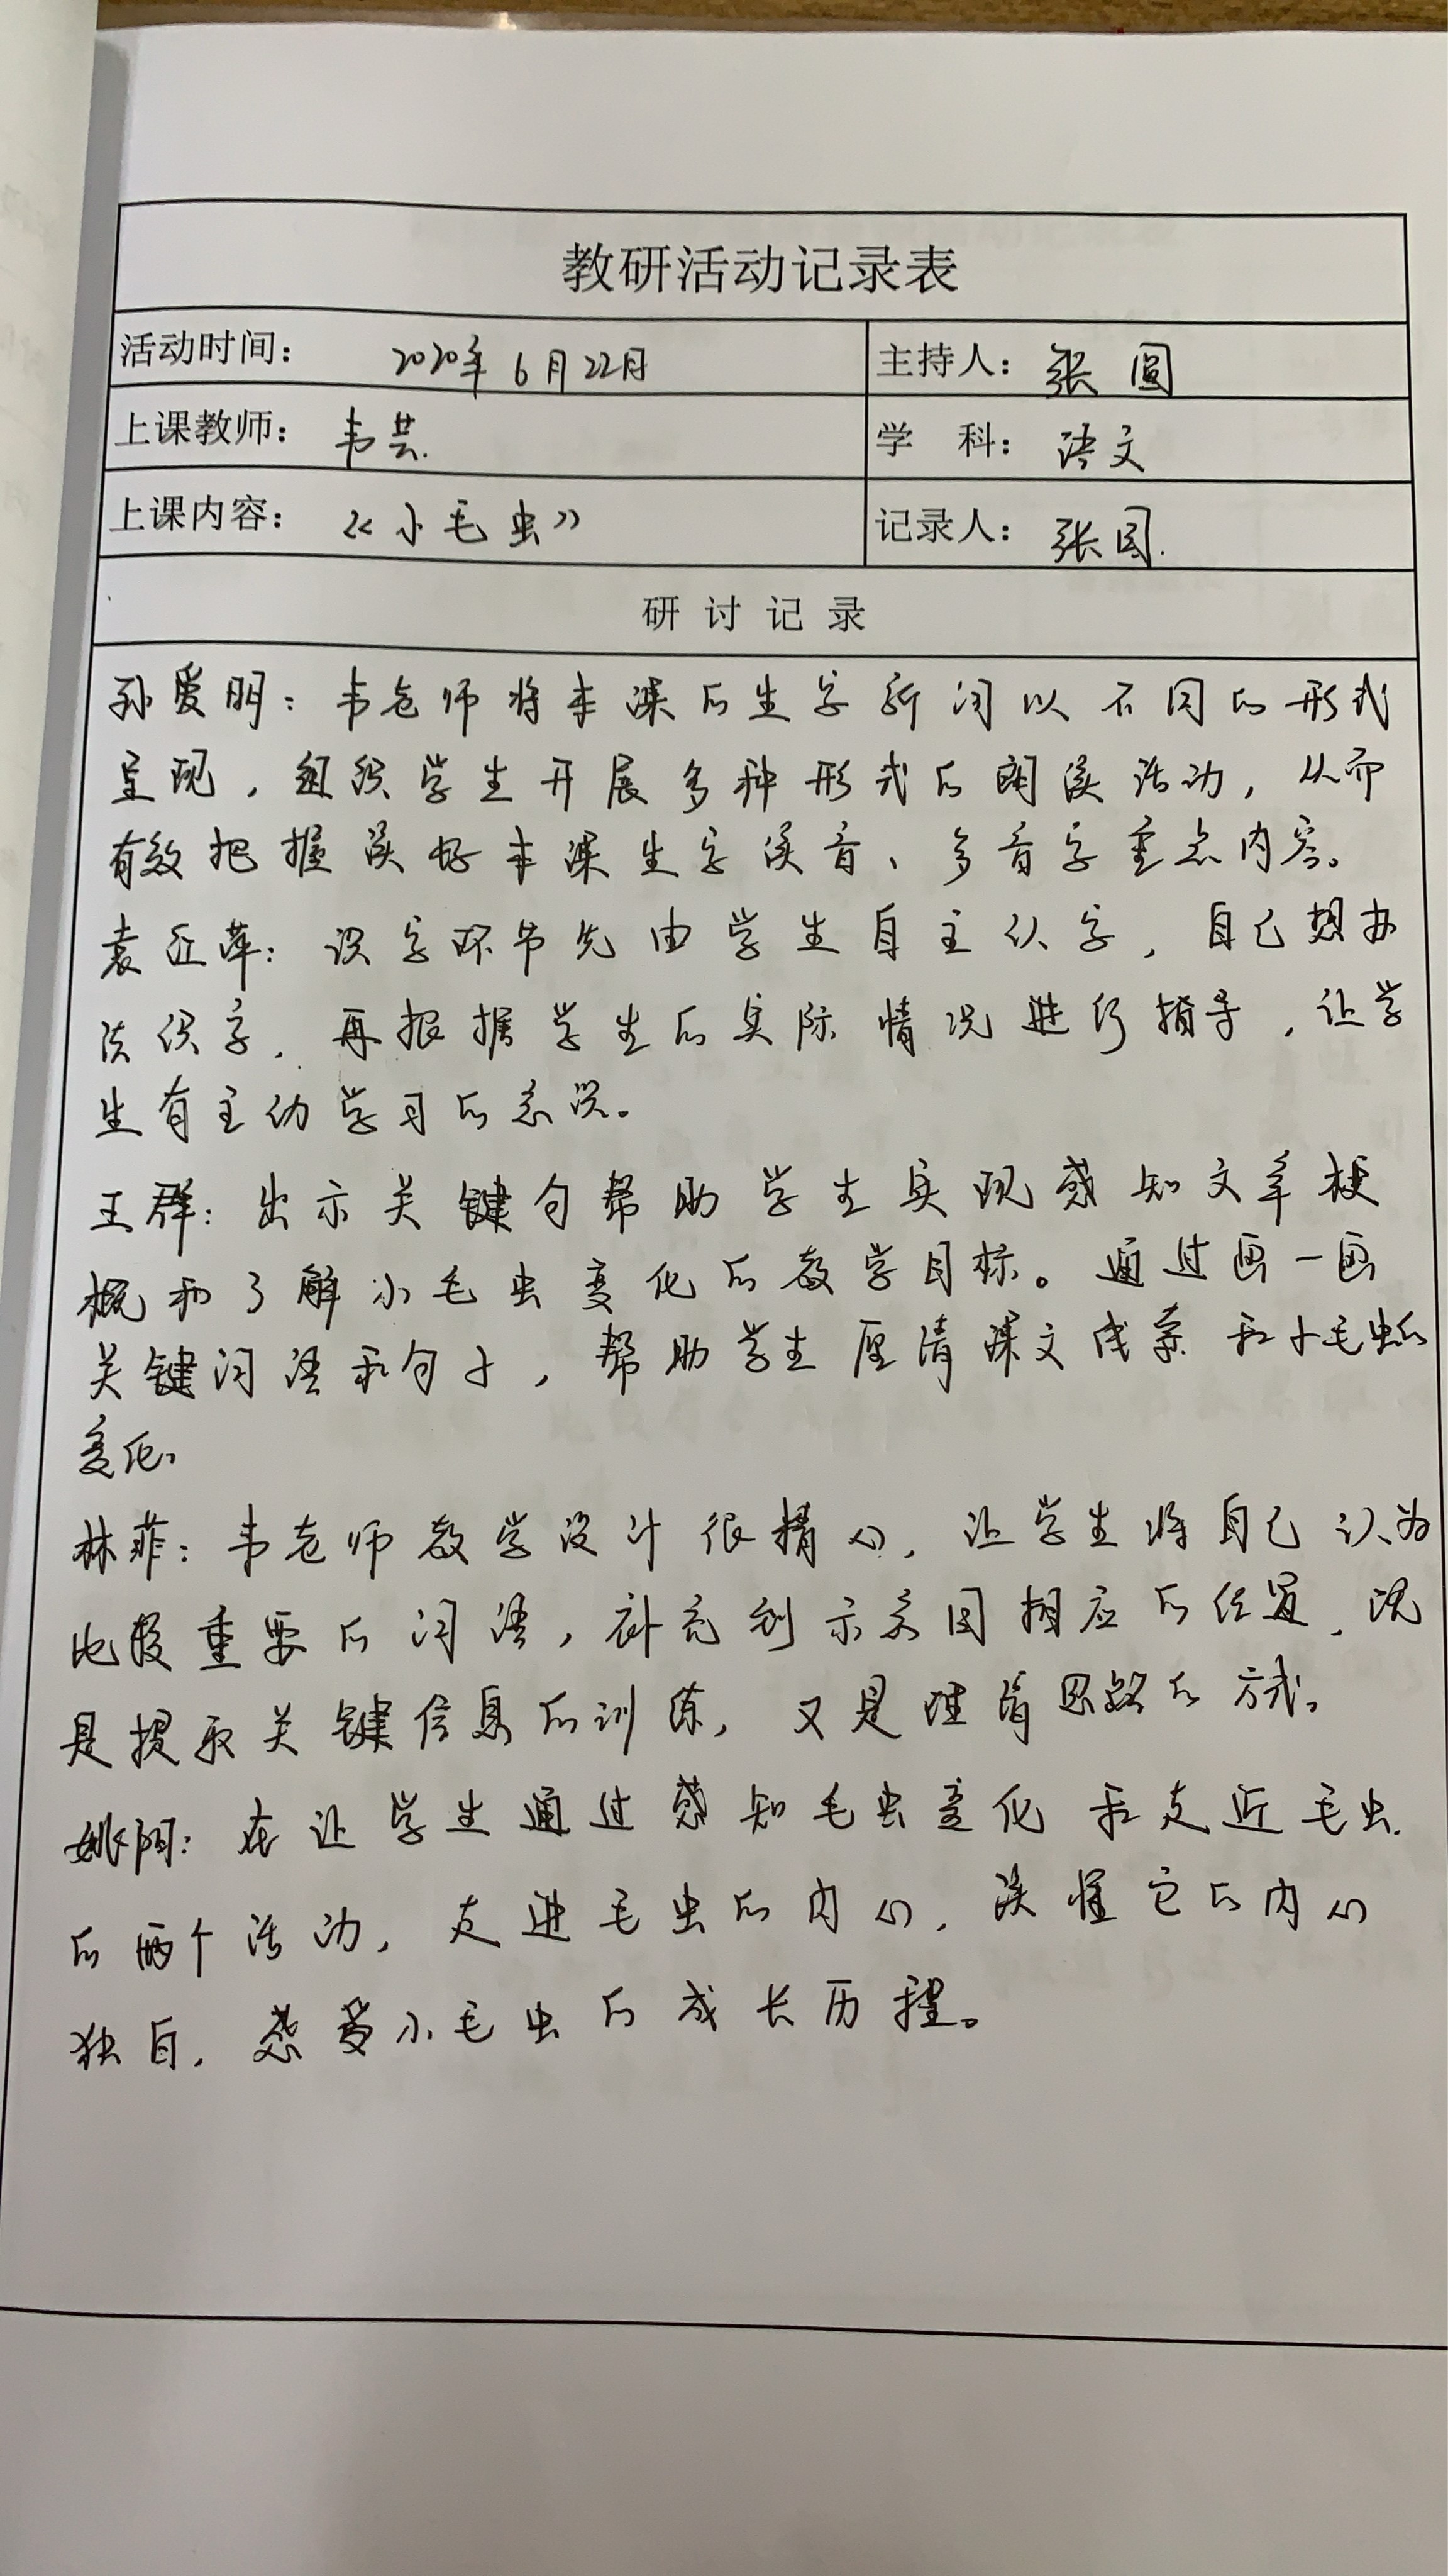 教研活动记录表
活动时间： 2020年6月22日 主持人：张圆
上课教师：韦芸. 学 科：语文
上课内容：《小毛虫》 记录人：张圆.
研 讨 记 录
孙爱明：韦老师将本课的生字新词以不同的形式
呈现，组织学生开展多种形式的朗读活动，从而
有效把握读好本课生字读音、多音字重点内容。
袁 萍：识字环节先由学生自主认字，自己想办
法识字，再根据学生的实际情况进行指导，让学
生有主动学习的意识。
王群：出示关键句帮助学生实现感知文章梗
概和了解小毛虫变化的教学目标。通过画一画
关键词语和句子，帮助学生厘清课文线索和小毛虫的
变化。
林菲：韦老师教学设计很精心，让学生将自己认为
比较重要的词语，补充到示意图相应的位置，既
是提取关键信息的训练，又是理清思路的方式。
姚阳：在让学生通过感知毛虫变化和走近毛虫
的两个活动，走进毛虫的内心，读懂它的内心
独白，感受小毛虫的成长历程。